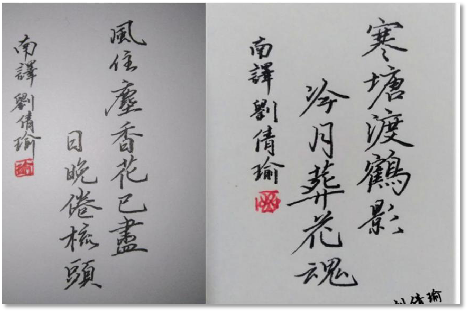 風住塵香花已盡
日晚倦梳頭
南譯 劉倩瑜
寒塘渡鶴影
冷月葬花魂
南譯 劉倩瑜
倩瑜